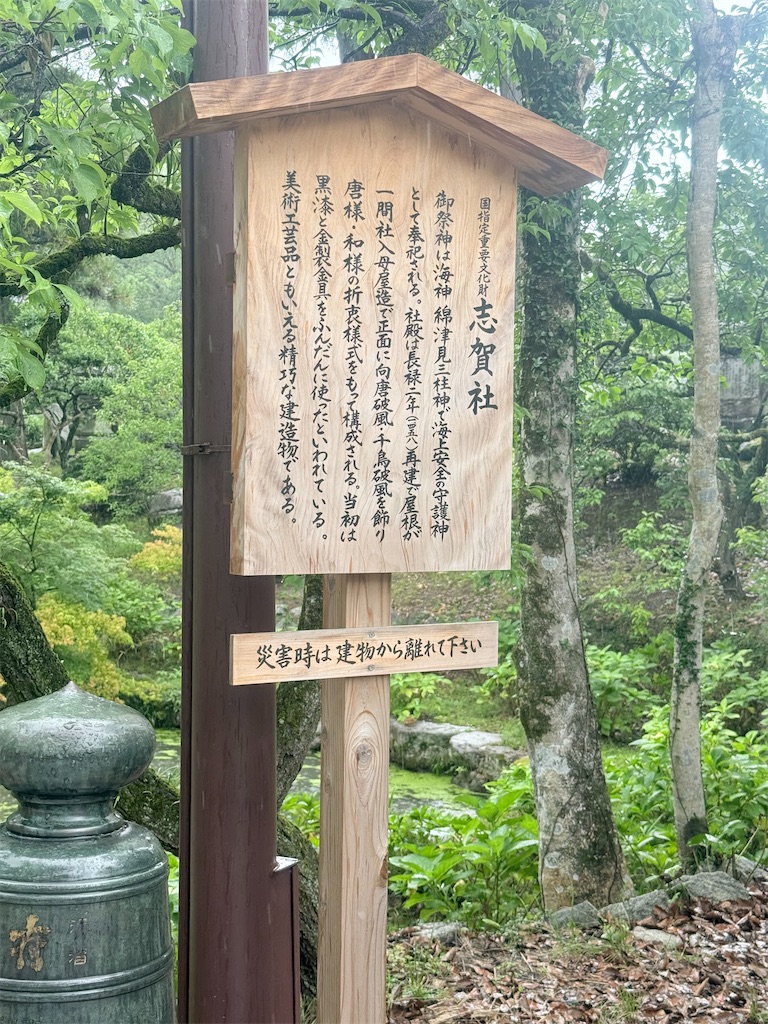 国指定重要文化財 志賀社
御祭神は海神 綿津見三柱神で海上安全の守護神
として奉祀される。社殿は長禄二年(一四五八)再建で屋根が
一間社入母屋造で正面に向唐破風・千鳥破風を飾り
唐様・和様の折衷様式をもって構成される。当初は
黒漆と金製金具をふんだんに使ったといわれている。
美術工芸品ともいえる精巧な建造物である。
災害時は建物から離れて下さい